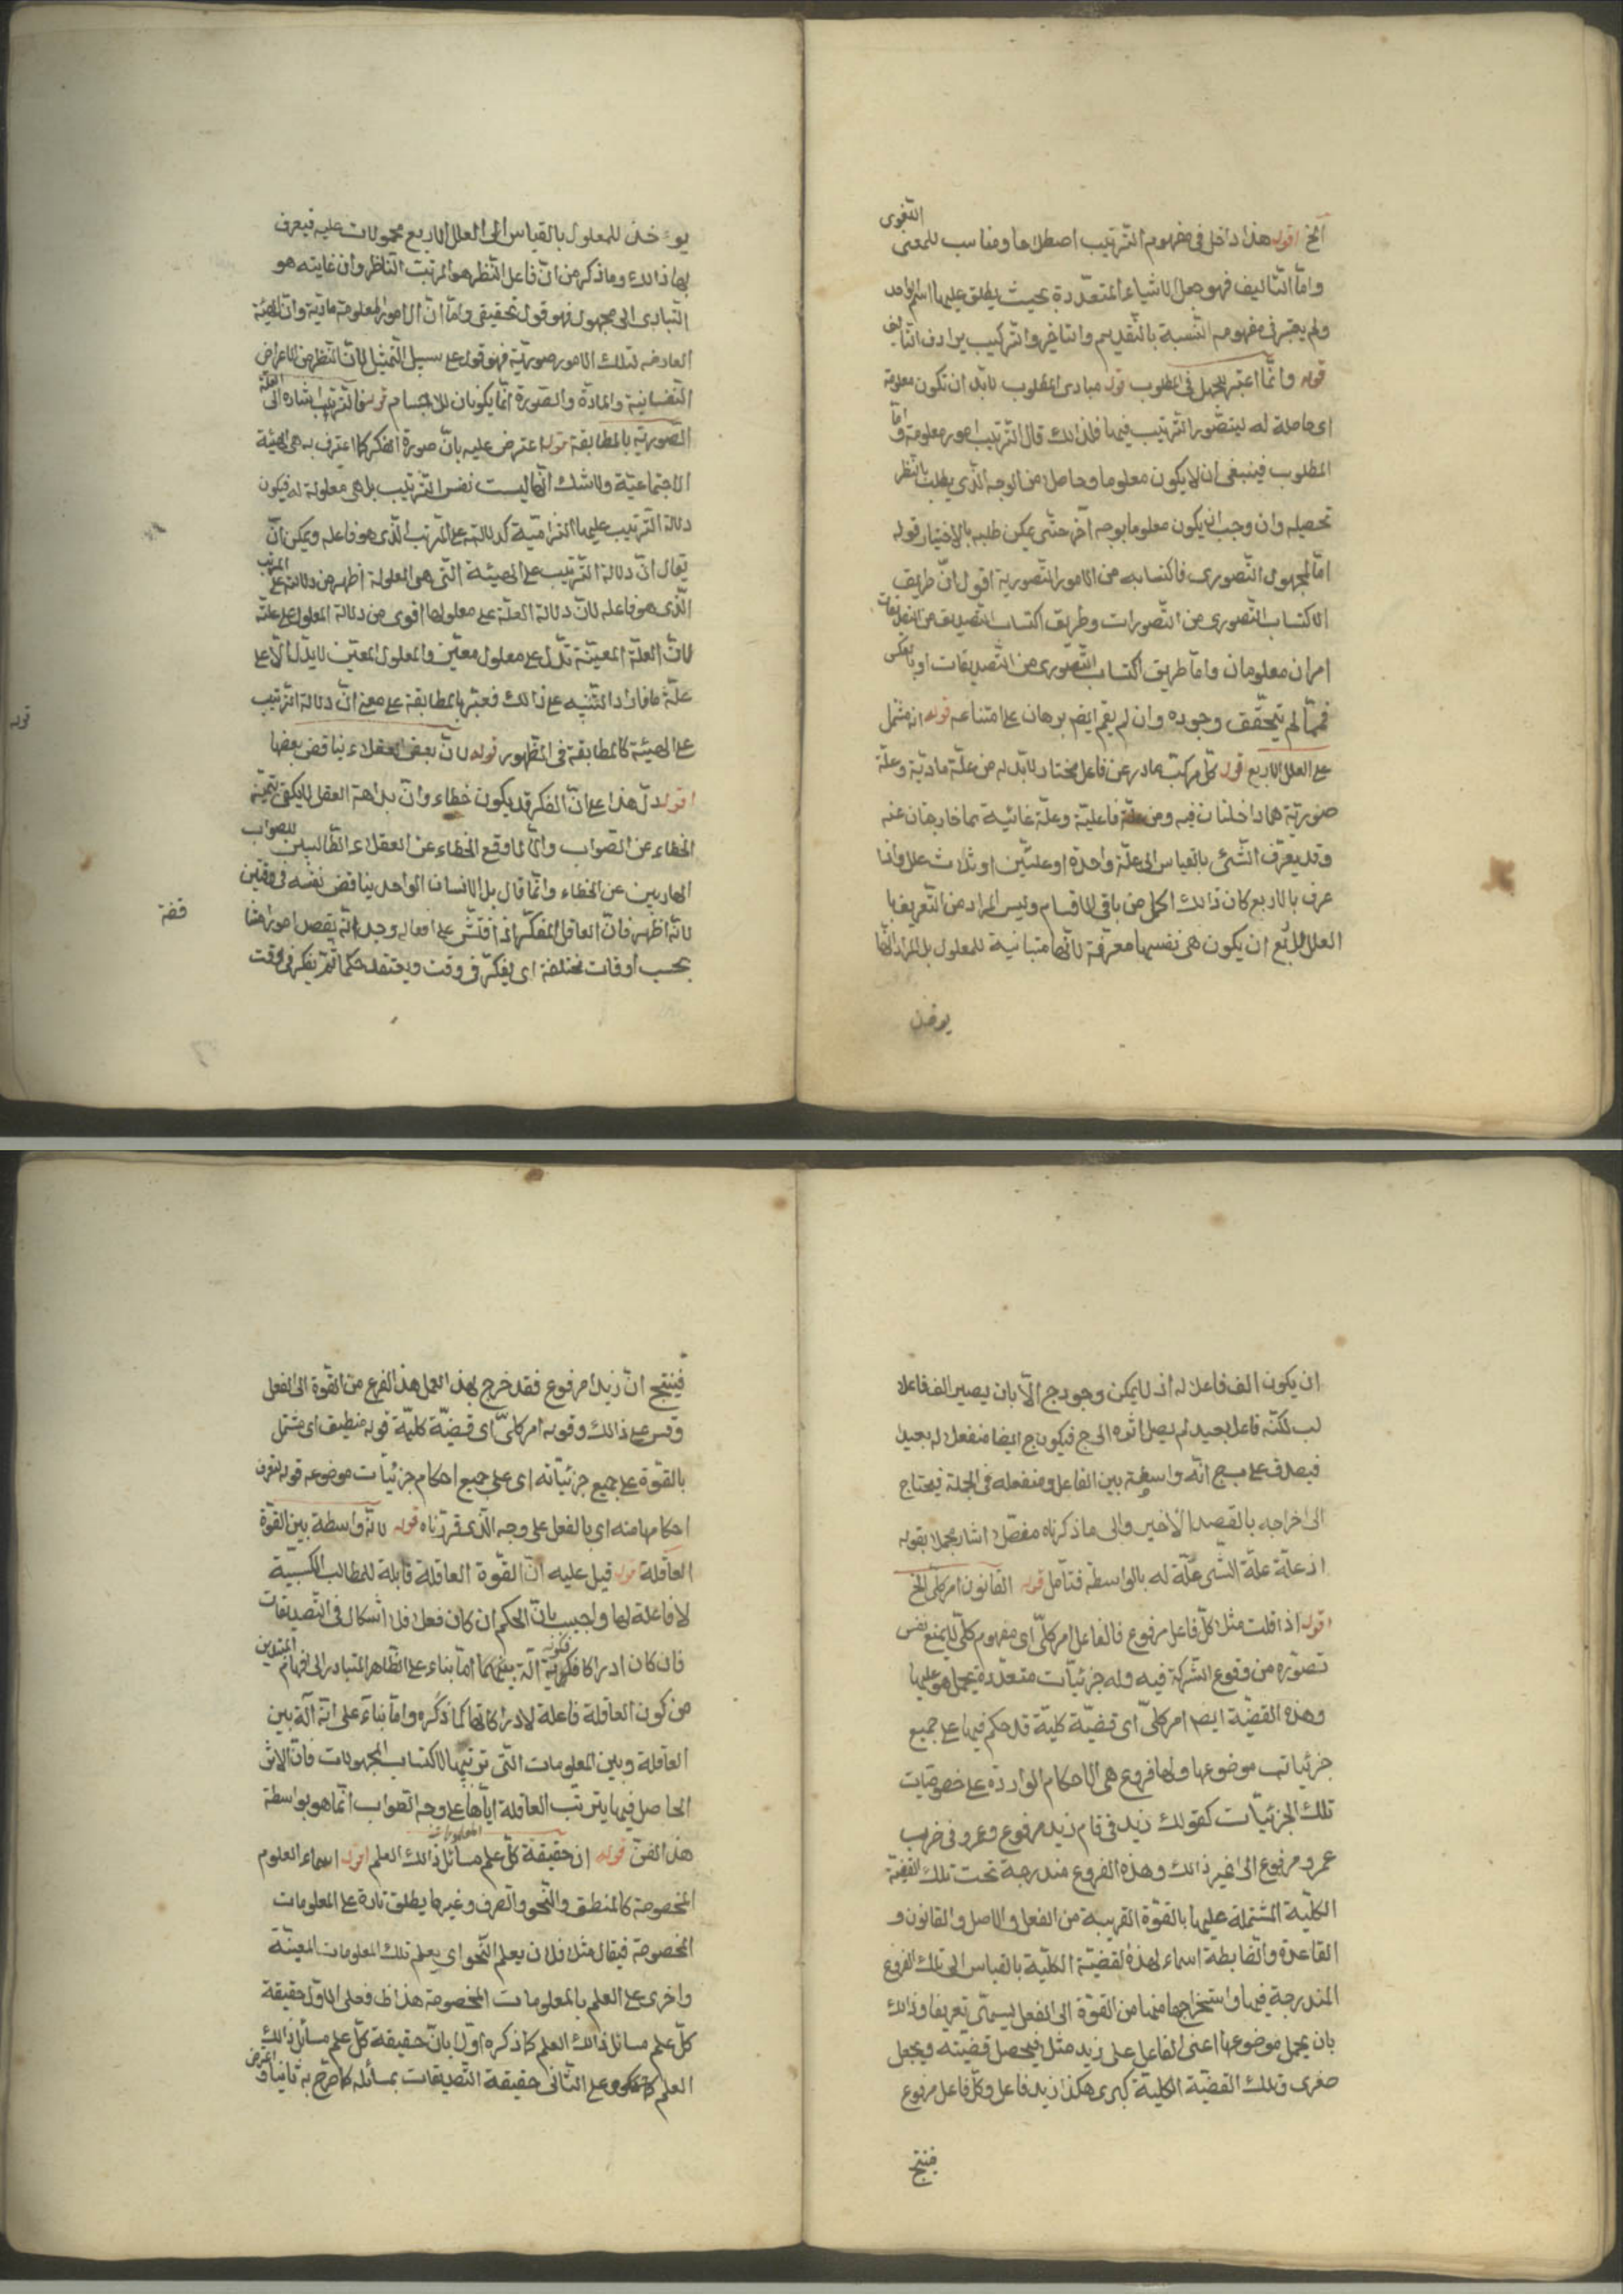 الخ اقول هذا داخل فى مفهوم الترتيب اصطلاحا ومناسب للمعنى اللّغوى
وامّا التّأليف فهو جعل الاشياء المتعدّدة بحيث يطلق عليها اسم الواحد
ولم يعتبر فى مفهومه النّسبة بالتّقديم والتاخير والتركيب يرادف التأليف
قوله وانّما اعتبر الجهل فى المطلوب قوله مبادى المطلوب لابدّ ان تكون معلومة
اى حاصلة له ليتصّور الترتيب فيها فلذالك قال الترتيب امور معلومة وامّا
المطلوب فينبغى ان لا يكون معلوما وحاصلا من الوجه الّذى يطلب بالنّظر
تحصيله وان وجب ان يكون معلوما بوجه آخر حتّى يمكن طلبه بالاختيار قوله
امّا المجهول التّصورى فاكتسابه من الامور التّصورية اقول انّ طريق
الاكتساب التّصورى من التّصورات وطريق اكتساب التّصديق من التّصديقات
امران معلومان وامّا طريق اكتساب التّصّورى من التّصديقات او بالعكس
فممّا لم يتحقّق وجوده وان لم يقم ايضم برهان على امتناعه قوله انه مشتمل
على العلل الاربع قوله كلّ مركّب صادر عن فاعل مختار لابدّ له من علّة مادّية وعلّة
صوريّة هما داخلتان فيه ومن علّة فاعليّة وعلّة غائية هما خارجتان عنه
وقد يعرّف الشّئ بالقياس الى علّة واحدة او علّتين او ثلاث علل واذا
عرف بالاربع كان ذالك اكمل من باقى الاقسام وليس المراد من التّعريف با
العلل الاربع ان يكون هى نفسها معرّفة لانّها متباينة للمعلول بل المراد انّها
يوخذ
يوٴخذ للمعلول بالقياس الى العلل الاربع محمولات عليه فيعرف
بها ذالك وما ذكر من انّ فاعل النّظر هو المرتب النّاظر وان غايته هو
التّأدى الى مجهول فهو قول تحقيقى وامّا انّ الامور المعلومة مادّية وانّ الهيئة
العارضه لتلك الامور صوريّة فهو قول على سبيل التّمثيل لانّ النّظر من الاعراض
النّفسانية والمادّة والصّورة انّما يكونان للاجسام قوله فالترتيب اشارة الى العلّة
الصّوريّه بالمطابقة قوله اعترض عليه بانّ صورة الفكر كما اعترف به هى الهيئة
الاجتماعيّة ولا شك انّها ليست نفس الترتيب بل هى معلولة له فيكون
دلالة الترتيب عليها التزاميّة كدلالته على المرتب الّذى هو فاعله ويمكن انّ
يقال انّ دلالة الترتيب على الهيئة التّى هى المعلولة اظهر من دلالته على المرتّب
الّذى هو فاعله لانّ دلالة العلّة على معلولها اقوى من دلالة المعلول على علّته
لانّ العلّة المعيّنة تدّل على معلول معيّن والمعلول المعيّن لا يدلّ الّا على
علّة ما فاراد التّنبيه على ذالك فعبّر بالمطابقة على معنى انّ دلالة الترتيب
على الهيئة كالمطابقة فى الظّهور قوله لانّ بعض العقلاء يناقض بعضها
اقول دلّ هذا على انّ الفكر قد يكون خطاء وانّ بداهة العقل لا يكفى تميّز
الخطاء عن الصّواب والّا لما وقع الخطاء عن العقلاء الطّالبين للصواب
الهاربين عن الخطاء وانّما قال بل الانسان الواحد يناقض نفسه فى وقتين
لانّه اظهر فانّ العاقل المفكّر اذا فتّش على افعاله وجد انّه يقصد امورا
بحسب أوقات مختلفة اى يفكّر فى وقت ويعتقد حكما ثمّ يفكر فى وقت
قوله
ان يكون الف فاعلا له اذ لا يمكن وجود ج الّا بان يصير الف فاعلا
لب لكنّه فاعل بعيد لم يصل اثره الى ج فيكون ج ايضا منفعل له بعيدا
فيصدق على ب ج انّه واسطة بين الفاعل ومنفعله فى الجملة فيحتاج
الى اخراجه بالقصد الأخير والى ما ذكرناه مفصّلا اشار مجملا بقوله
اذ علّة علّة الشّى علّة له بالواسطة فتأمل قوله القانون امر كلّى الخ
اقول اذا قلت مثلا كلّ فاعل مرفوع فالفاعل امر كلّى اى مفهوم كلّى لا يمنع نفس
تصوّره من وقوع الشّركة فيه وله جزئيّات متعدّدة يحمل هو عليها
وهذه القضيّة ايضم امر كلّى اى قضيّة كليّة قد حكم فيها على جميع
جزئياتب موضوعها ولها فروع هى الاحكام الوارده على خصوصيّات
تلك الجزئيّات كقولك زيد فى قام زيد مرفوع وعمرو فى ضرب
عمرو مرفوع الى غير ذالك وهذه الفروع مندرجة تحت تلك القضيّة
الكليّة المشتمله عليها بالقوّة القريبة من الفعل والاصل والقانون و
القاعدة والضّابطة اسماء لهذه القضيّة الكلّية بالقياس الى تلك الفروع
المندرجة فيها واستخراجها منها من القوّة الى الفعل يسمّى تعريفا وذالك
بان يحمل موضوعها اعنى الفاعل على زيد مثلا فيحصل قضيّته ويجعل
صغرى وتلك القضيّة الكليّة كبرى هكذا زيد فاعل وكلّ فاعل مرفوع
فينتج
فينتج انّ زيدا مرفوع فقد خرج بهذا العمل هذا الفرع من القوّة الى الفعل
وقس على ذالك وقوله امر كلىّ اى قضيّة كليّة قوله منطبق اى مشتمل
بالقوّة على جميع جزئيّاته اى على جميع احكام جزئيّات موضوعه قوله لتعرف
احكامها منه اى بالفعل على وجه الّذى قرّرناه قوله لانّه واسطة بين القوّة
العاقلة قوله قيل عليه انّ القوّة العاقلة قابلة للمطالب الكسبيّة
لا فاعلة لها واجيب بانّ الحكم ان كان فعلا فلا اشكال فى التّصديقات
فان كان ادراكا فكونه آلة بينهما امّا بناء على الظّاهر المتبادر الى افهام المبتدين
من كون العاقلة فاعلة لادراكاتها كما ذكره وامّا بناء على انّه آلة بين
العاقلة وبين المعلومات التّى ترتيبها لاكتساب المجهولات فانّ الاثر
الحاصل فيها بترتيب العاقلة ايّاها على وجه الصّواب انّما هو بواسطة
هذا الفنّ قوله ان حقيقة كلّ علم مسائل ذالك العلم اقول اسماء العلوم
المخصوصة كالمنطق والنّحو والصّرف وغيرها يطلق تارة على المعلومات
المخصوصة فيقال مثلا فلان يعلم النّحو اى يعلم تلك المعلومات المعيّنة
واخرى على العلم بالمعلومات المخصوصة هذا ظ فعلى الاوّل حقيقة
كلّ علم مسائل ذالك العلم كما ذكره اوّلا بانّ حقيقة كلّ علم مسائل ذالك
العلم وعلى الثّانى حقيقة التّصديقات بمسائله كما صرّح به ثانيا و